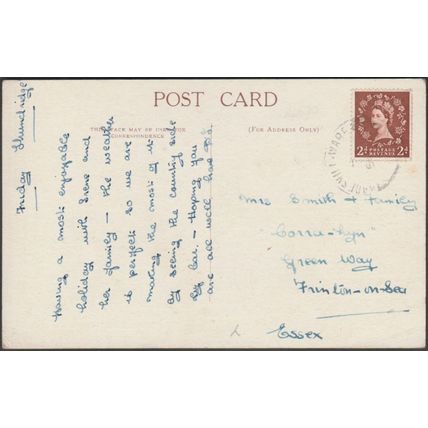 POST CARD
THIS SPACE MAY BE USED FOR
CORRESPONDENCE
(FOR ADDRESS ONLY)
Friday
Having a most enjoyable
holiday with Irene and
her family – the weather
is perfect so we are
making the most of it
by seeing the country side
by car. – Hoping you
are all well
2D POSTAGE 2D
REVENUE
Mrs Smith & Family
"Corra-Lyn"
Green Way
Frinton-on-Sea
Essex